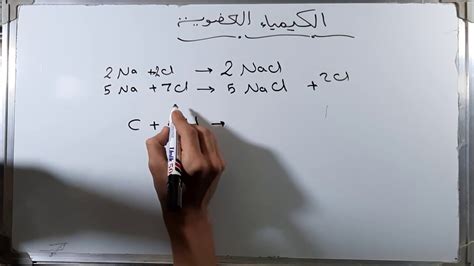 الكيمياء العضوية
2 Na + 2Cl → 2 NaCl
5 Na + 7Cl → 5 NaCl + 2Cl
C + →